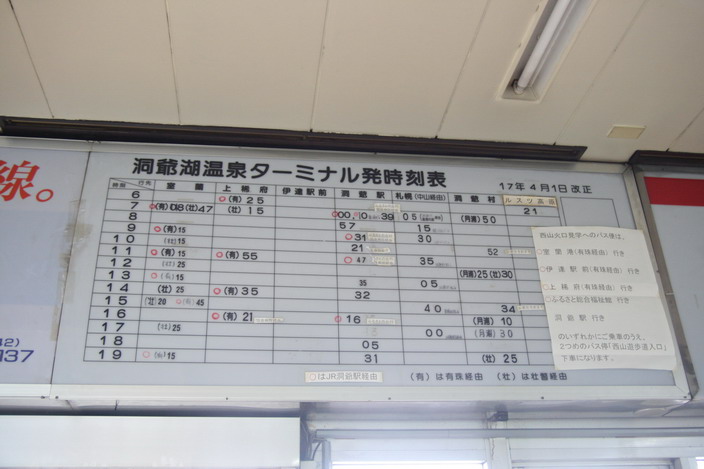 線。
137
洞爺湖温泉ターミナル発時刻表
17年4月1日改正
行先 室蘭 上稀府 伊達駅前 洞爺駅 札幌(中山経由) 洞爺村 ルスツ高原
6 (有)25
7 (壮)47 (壮)15 39 05 (月浦)50 21
8 57 15
9 (有)15 31 30
10 (壮)15 21
11 (有)15 (有)55 47 52
12 (壮)25 35
13 (有)15 (月浦)25(壮)30
14 (壮)25 (有)35 35 05
15 (壮)20 (有)45 32 40 34
16 (有)21 16 (月浦)10
17 (壮)25 00 (月浦)30
18 05
19 (有)15 31 (壮)25
○はJR洞爺駅経由 (有)は有珠経由 (壮)は壮瞥経由
西山火口見学へのバス便は、
○室蘭港(有珠経由)行き
○伊達駅前(有珠経由)行き
○上稀府(有珠経由)行き
○ふるさと総合福祉館 行き
洞爺駅 行き
のいずれかにご乗車のうえ、
2つめのバス停「西山遊歩道入口」
下車になります。